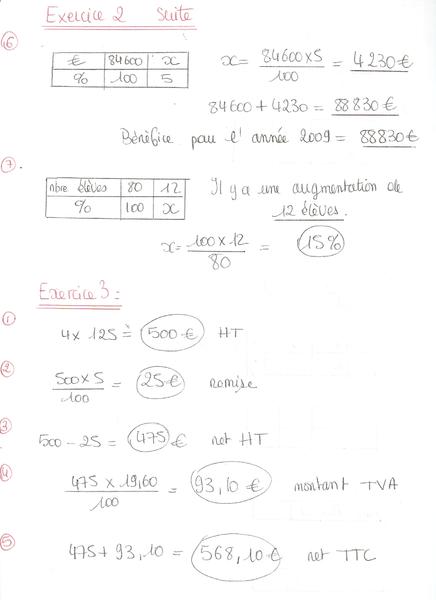 Exercice 2 suite
6
€ 84600 x
% 100 5
x = 84600 x 5 / 100 = 4230 €
84600 + 4230 = 88830 €
Bénéfice pour l'année 2009 = 88830 €
7.
nbre élèves 80 12
% 100 x
Il y a une augmentation de
12 élèves.
x = 100 x 12 / 80 = 15%
Exercice 3 =
1
4 x 125 = 500 € HT
2
500 x 5 / 100 = 25 € remise
3
500 - 25 = 475 € net HT
4
475 x 19,60 / 100 = 93,10 € montant TVA
5
475 + 93,10 = 568,10 € net TTC